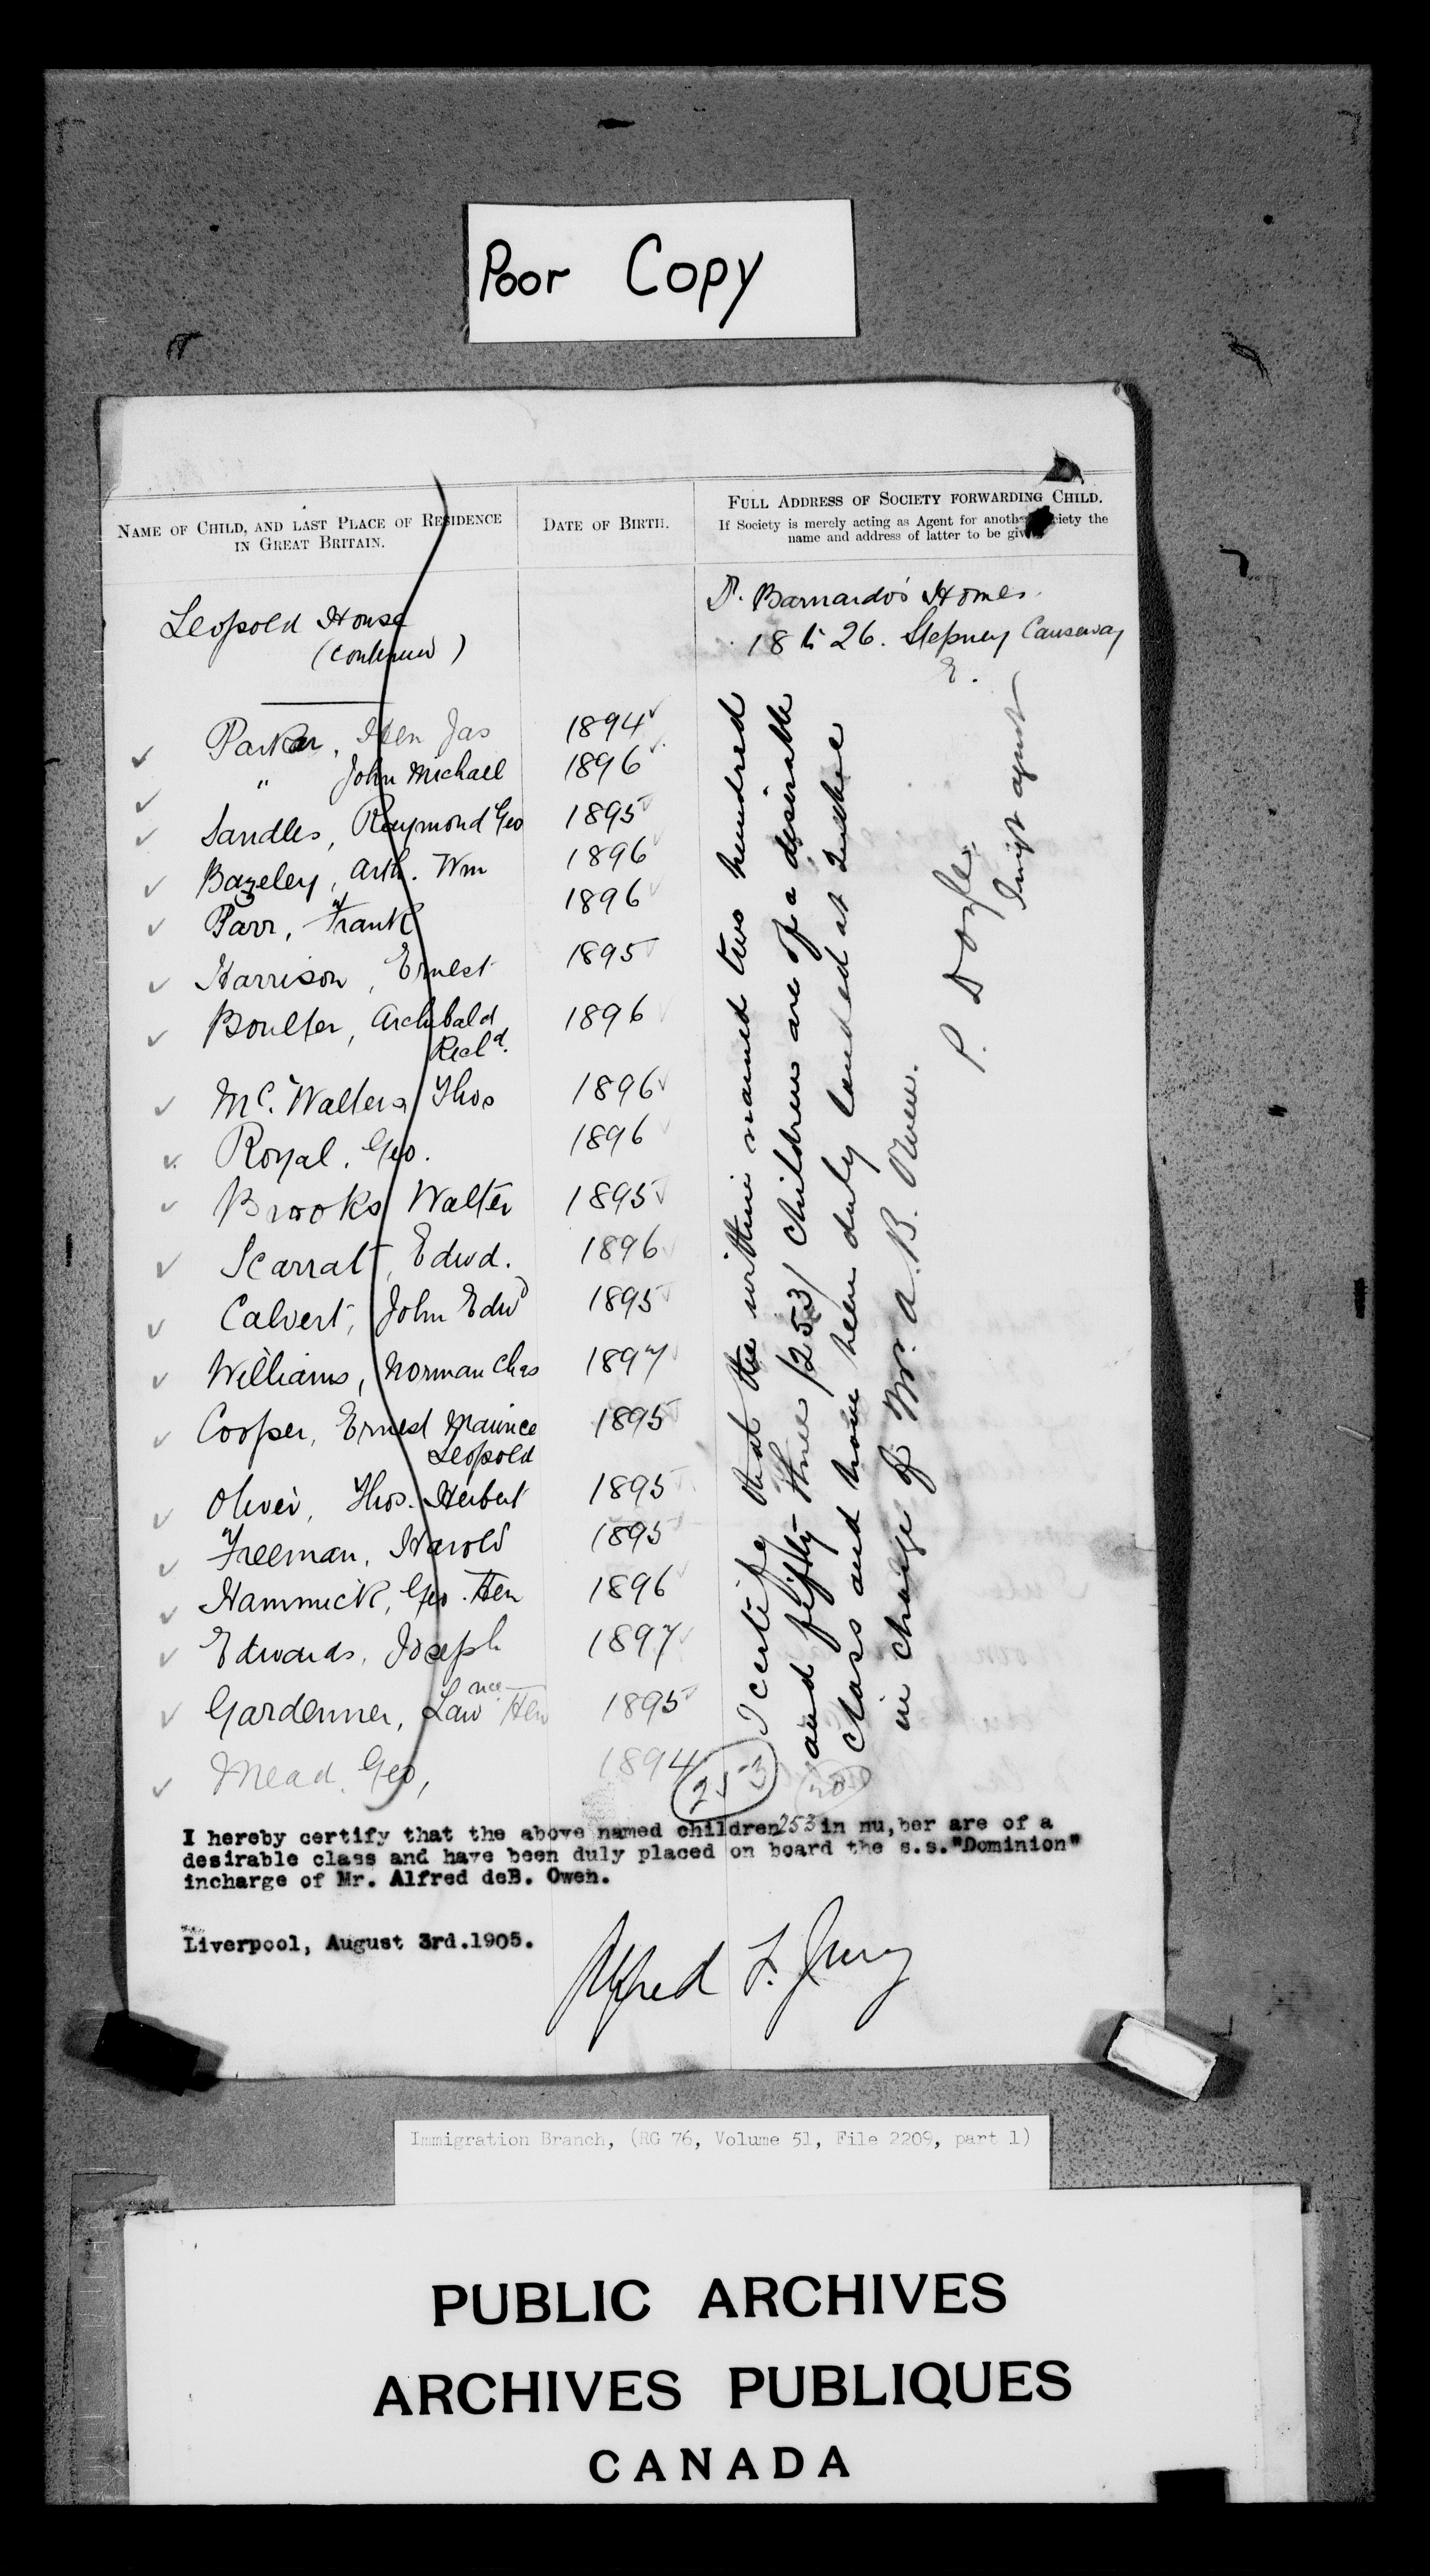 Poor Copy
NAME OF CHILD, AND LAST PLACE OF RESIDENCE
IN GREAT BRITAIN.
DATE OF BIRTH.
FULL ADDRESS OF SOCIETY FORWARDING CHILD.
If Society is merely acting as Agent for another Society the
name and address of latter to be given
Leopold House
(continued)
Dr. Barnardo's Homes.
18 to 26. Stepney Causeway
E.
Parker, Hen Jas 1894
" John Michael 1896
Sandles, Raymond Geo 1895
Bazeley, Arth. Wm 1896
Parr, Frank 1896
Harrison, Ernest 1895
Boulter, Archibald 1896
Richd.
Mc. Walters, Thos 1896
Royal, Geo. 1896
Brooks, Walter 1895
Scarrat, Edwd. 1896
Calvert, John Edwd 1895
Williams, Norman Chas 1897
Cooper, Ernest Maurice 1895
Leopold
Oliver, Thos. Herbert 1895
Freeman, Harold 1895
Hammick, Geo. Hen 1896
Edwards, Joseph 1897
Gardenner, Lawnce Hen 1895
Mead, Geo, 1894
253
20
I certify that the within named two hundred
and fifty-three /253/ children are of a desirable
class and have been duly landed at Quebec
in charge of Mr. A. B. Owen.
P. Doyle,
Immigt agent
I hereby certify that the above named children 253 in nu,ber are of a
desirable class and have been duly placed on board the s.s."Dominion"
incharge of Mr. Alfred deB. Owen.
Liverpool, August 3rd.1905.
Alfred F. Jury
Immigration Branch, (RG 76, Volume 51, File 2209, part 1)
PUBLIC ARCHIVES
ARCHIVES PUBLIQUES
CANADA